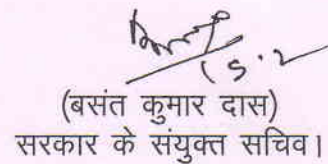 (बसंत कुमार दास)
सरकार के संयुक्त सचिव।